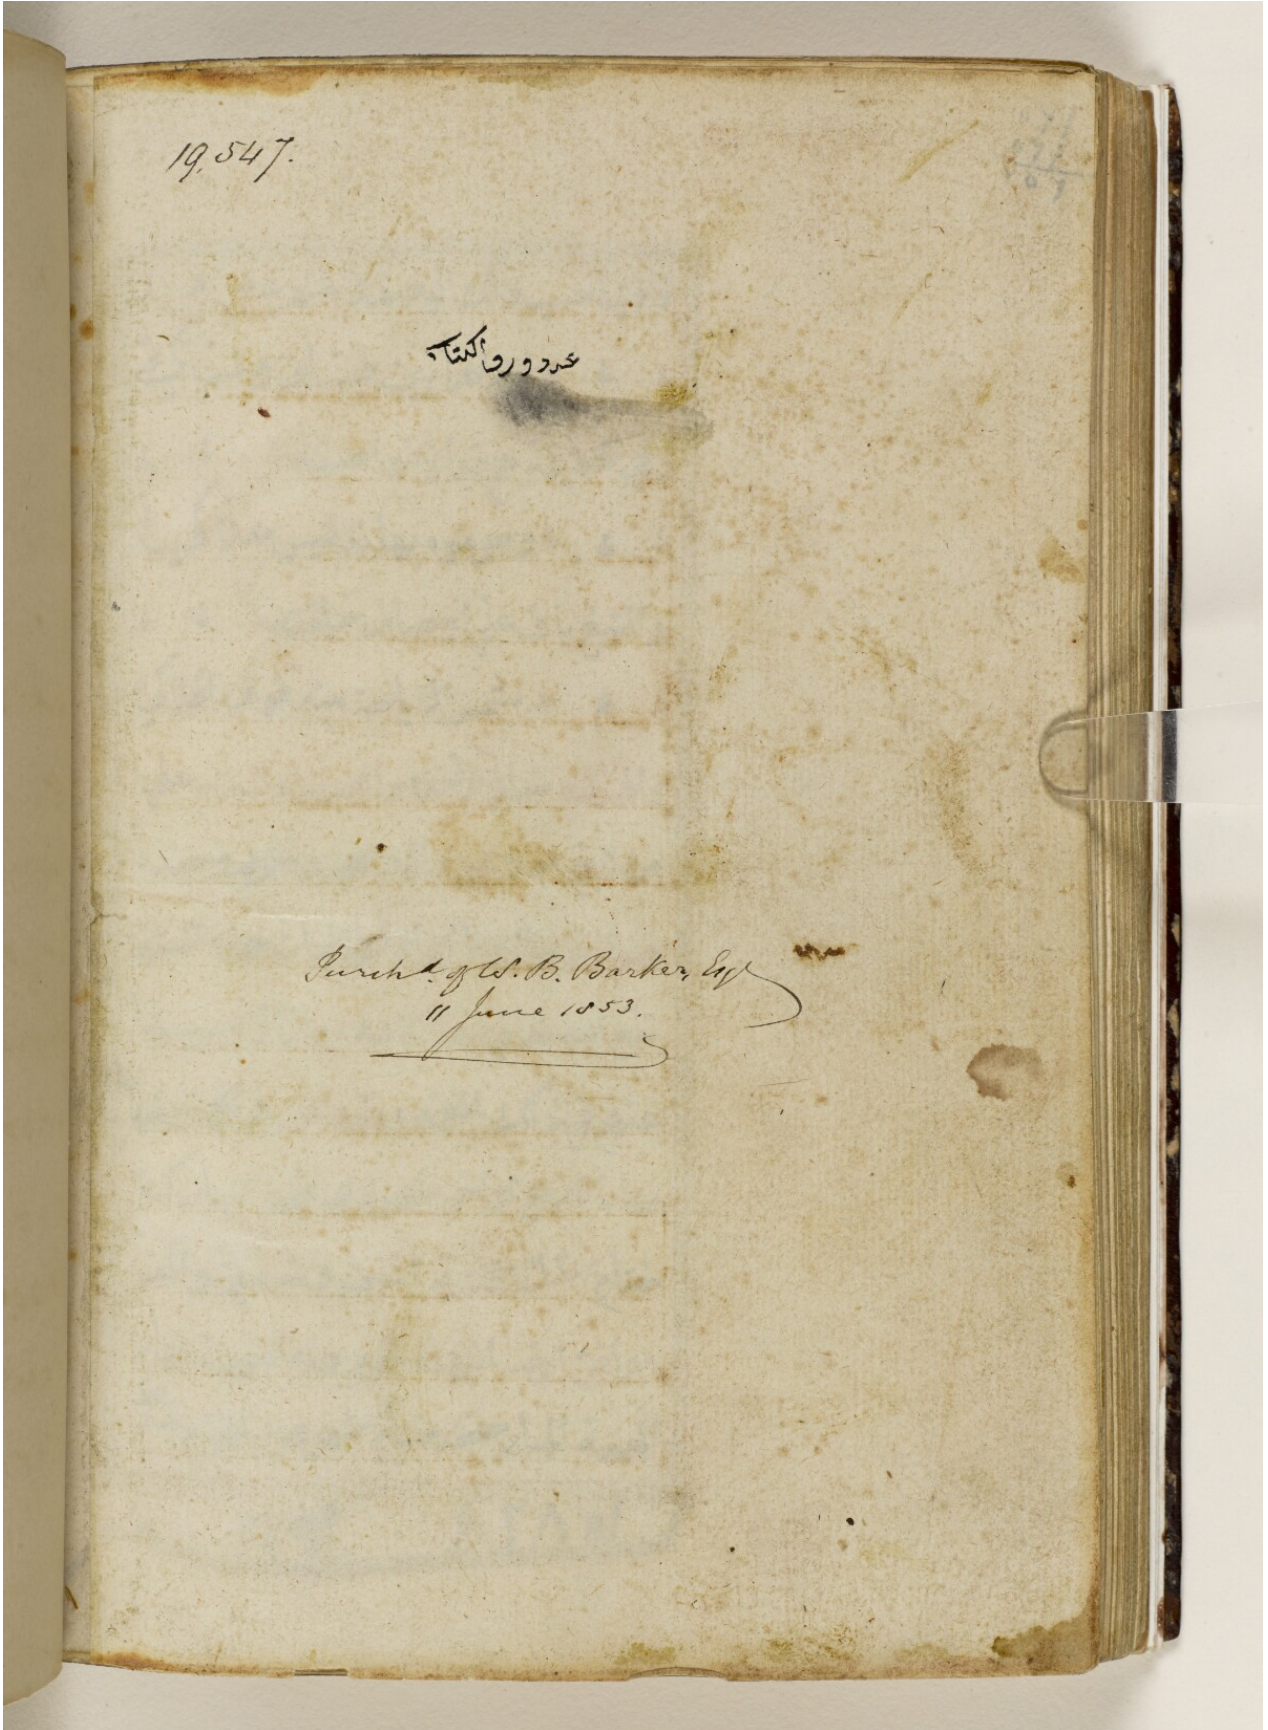 19,547.
عدد ورق الكتاب
Purchd. of W. B. Barker, Esq
11 June 1853.